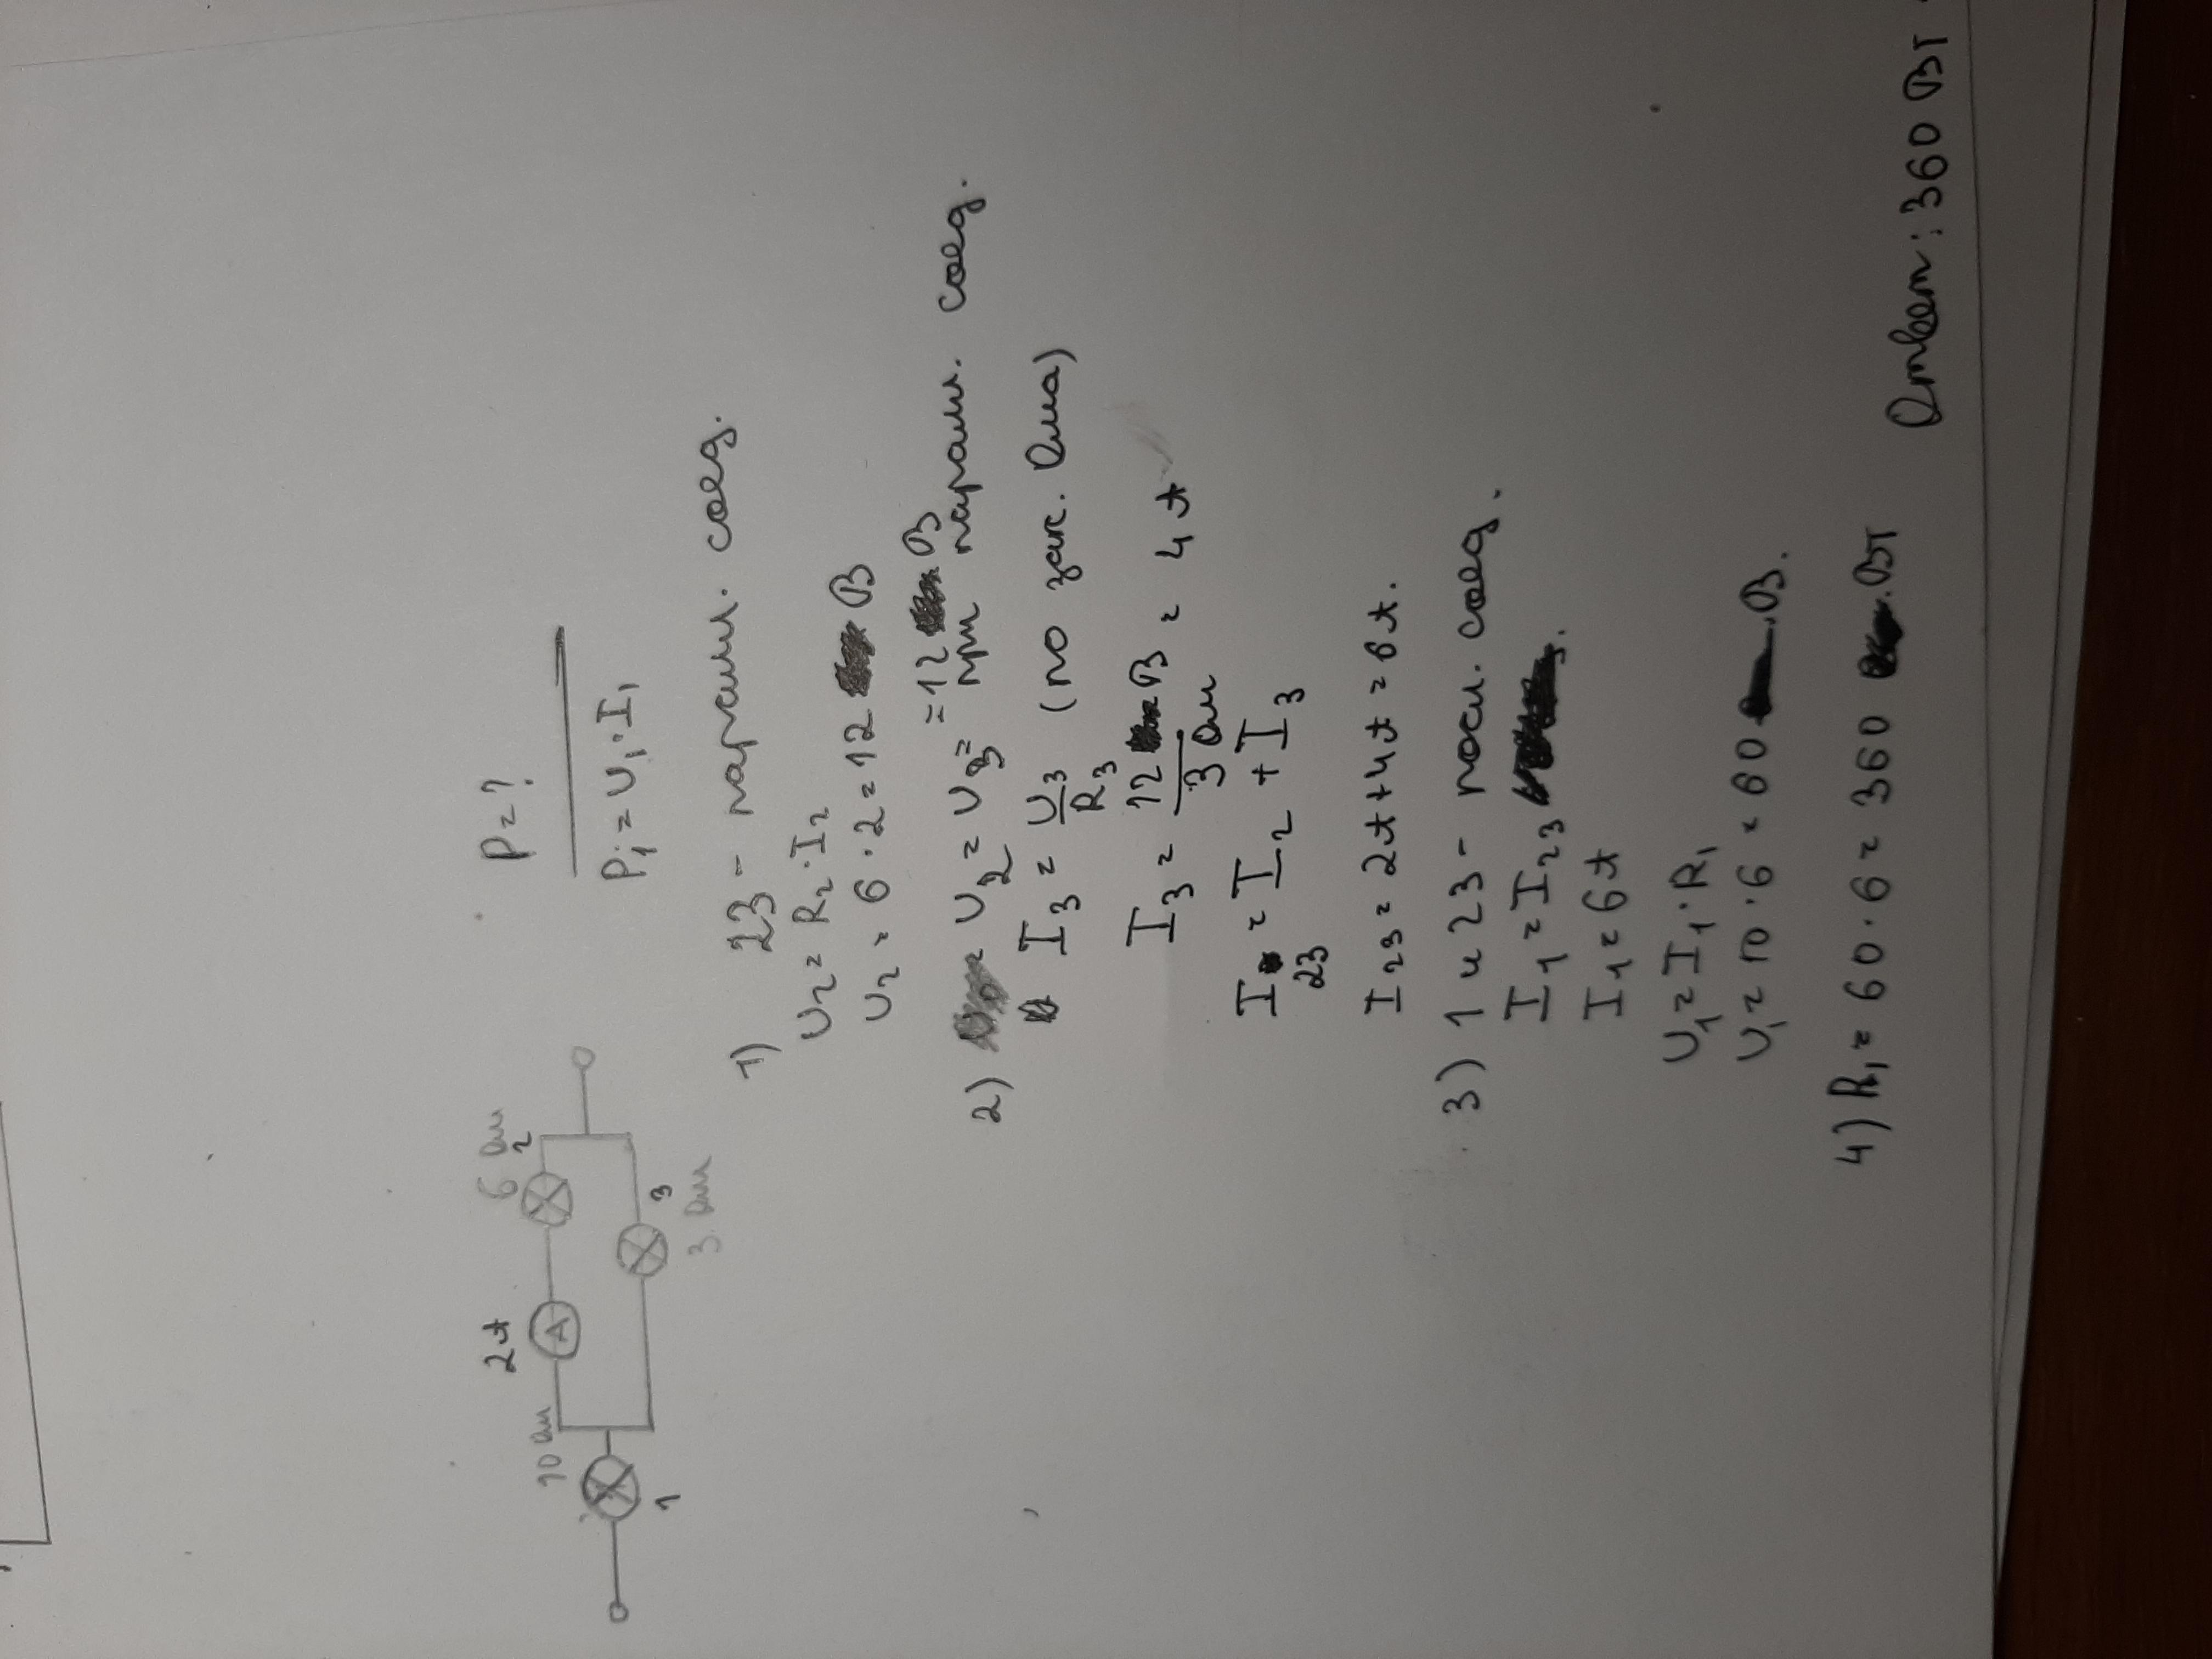 10 Ом 2А 6 Ом
A 2
1 3
3 Ом
P = ?
P₁ = U₁·I₁
1) 23 - паралл. соед.
U₂ = R₂·I₂
U₂ = 6·2 = 12 В
2) U₂ = U₃ = 12 В при паралл. соед.
I₃ = U₃/R₃ (по зак. Ома)
I₃ = 12 В/3 Ом = 4 А
I₂₃ = I₂ + I₃
I₂₃ = 2А + 4А = 6А.
3) 1 и 23 - посл. соед.
I₁ = I₂₃
I₁ = 6А
U₁ = I₁·R₁
U₁ = 10·6 = 60 В.
4) P₁ = 60·6 = 360 Вт
Ответ: 360 Вт.